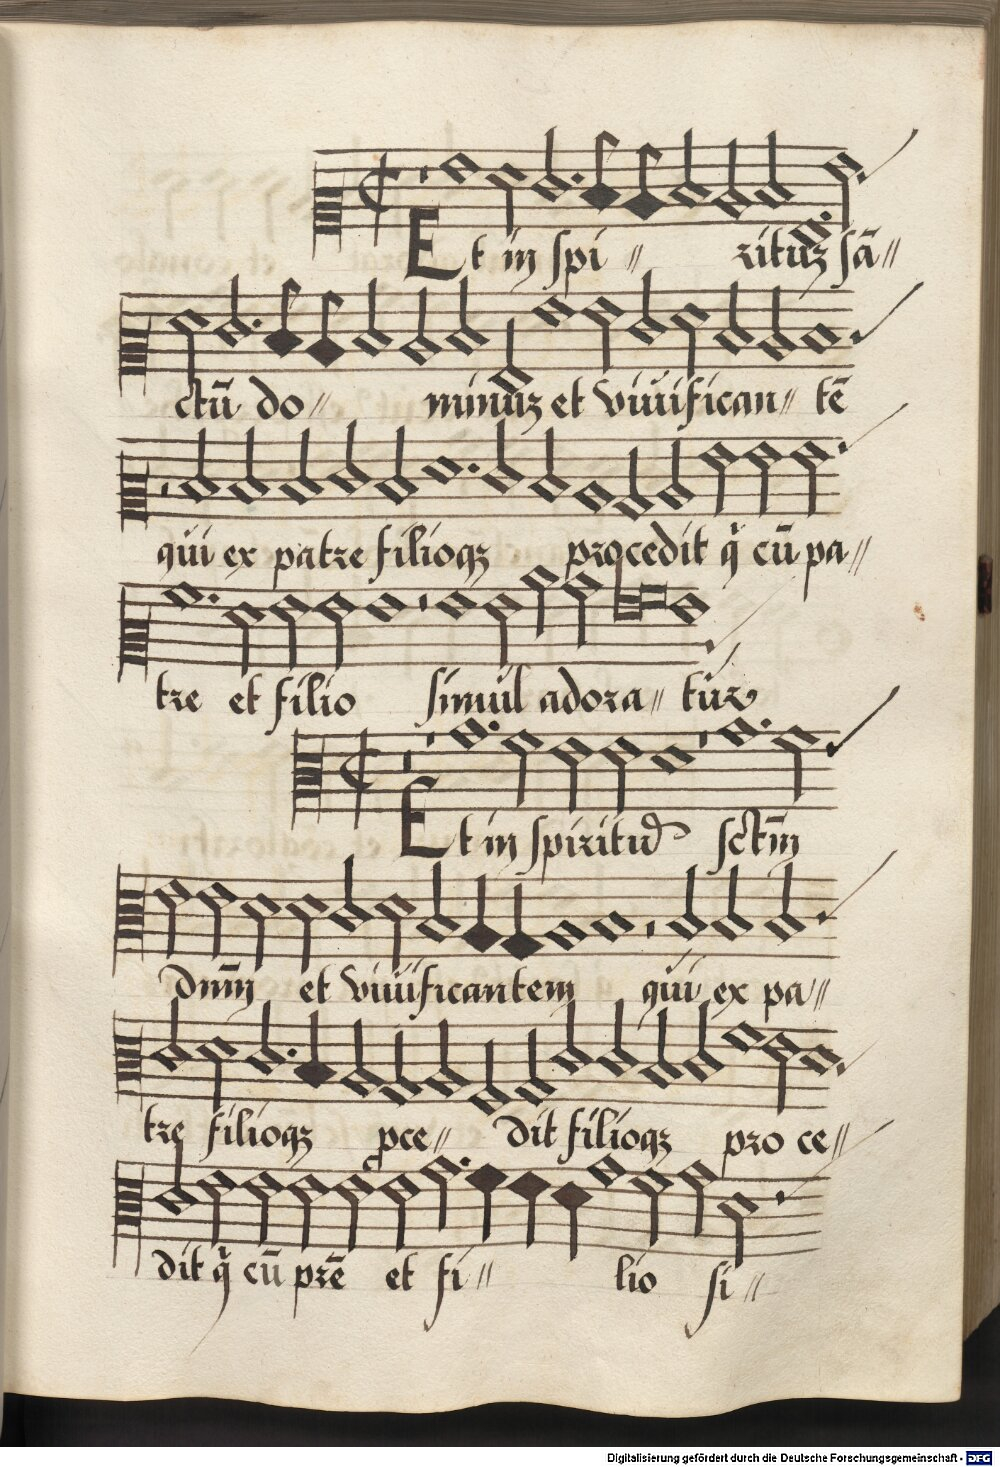 Et in spi // rituz sā //
ctū do // minuz et viuifican // tē
qui ex patre filioqz procedit q̄ cū pa //
tre et filio simul adora // tur
Et in spiritū sctm̄
dnm̄ et viuificantem qui ex pa //
tre filioqz ꝓce // dit filioqz pro ce //
dit q̄ cū prē et fi // lio si //
Digitalisierung gefördert durch die Deutsche Forschungsgemeinschaft - DFG